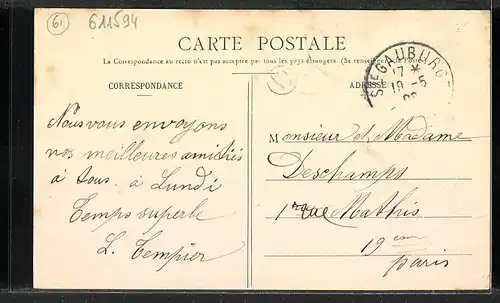 6i
611594
CARTE POSTALE
La Correspondance au recto n'est pas acceptée par tous les pays étrangers. (Se renseigner à la Poste)
CORRESPONDANCE
ADRESSE
STE GAUBURGE
17 *
19 - 5
Nous vous envoyons
nos meilleures amitiés
à tous. à Lundi
Temps superbe
L. Tempier
Monsieur et Madame
Deschamps
1 rue Mathis
19 eme
paris